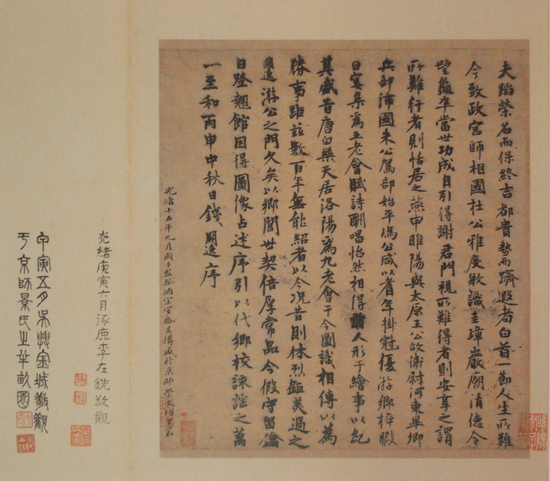 夫蹈榮名而保終吉都貴勢而躋遐耇白首一節人生所難
今致政宮師相國杜公雅度敏識圭璋巖廟清德令
望龜準當世功成自引得謝君門視所難得者則安享之謂
所難行者則恬居之燕申睢陽與太原王公故衛尉河東畢卿
兵部沛國朱公駕部始平馮公咸以耆年掛冠優游鄉梓暇
日宴集爲五老會賦詩酬唱怡然相得諸人形于繪事以紀
其盛昔唐白樂天居洛陽爲九老會于今圖識相傳以爲
勝事距茲數百年無能紹者以今況昔則休烈鉅美過之
明逸游公之門久矣以鄉閭世契倍厚常品今假守留鑰
日登翹館因得圖像占述序引以代鄉校詠謠之萬
一至和丙申中秋日錢明逸序
光緒十五年九月
光緒庚寅六月涿鹿李在銑敬觀
甲寅五月吳興金城敬觀
于京師景氏之半畝園